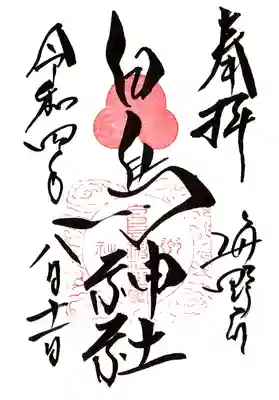 奉拝
海野宿
白鳥神社
令和四年
八月十一日